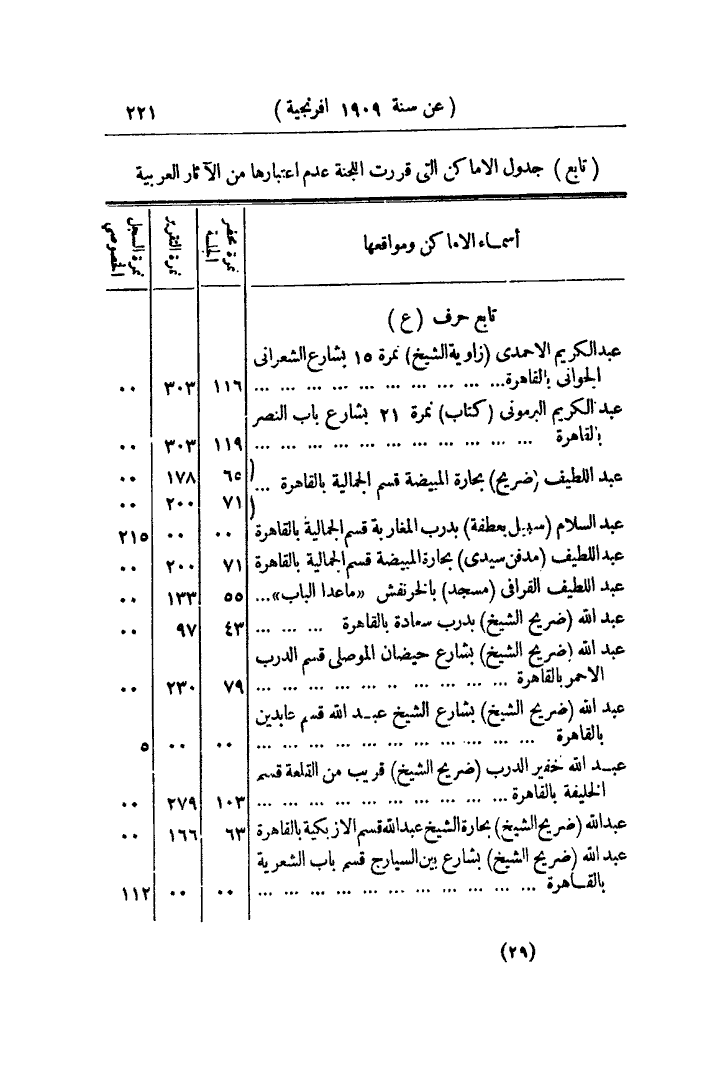 (عن سنة ١٩٠٩ افرنجية) ٢٢١
(تابع) جدول الاماكن التى قررت اللجنة عدم اعتبارها من الآثار العربية
أسماء الاماكن ومواقعها | نمرة محضر الجلسة | نمرة التقرير | نمرة السجل الخصوصي
تابع حرف (ع)
عبدالكريم الاحمدى (زاوية الشيخ) نمرة ١٥ بشارع الشعرانى
الجوانى بالقاهرة... ... ... ... ... ... ... ... ... ... ١١٦ ٣٠٣ ٠٠
عبد الكريم البرمونى (كتاب) نمرة ٢١ بشارع باب النصر
بالقاهرة ... ... ... ... ... ... ... ... ... ... ... ١١٩ ٣٠٣ ٠٠
عبد اللطيف (ضريح) بحارة المبيضة قسم الجمالية بالقاهرة ... ( ٦٥ ١٧٨ ٠٠
( ٧١ ٢٠٠ ٠٠
عبد السلام (سبيل بعطفة) بدرب المغاربة قسم الجمالية بالقاهرة ٠٠ ٠٠ ٢١٥
عبد اللطيف (مدفن سيدى) بحارة المبيضة قسم الجمالية بالقاهرة ٧١ ٢٠٠ ٠٠
عبد اللطيف القرافى (مسجد) بالخرنفش «ماعدا الباب»... ٥٥ ١٣٣ ٠٠
عبد الله (ضريح الشيخ) بدرب سعادة بالقاهرة ... ... ... ٤٣ ٩٧ ٠٠
عبد الله (ضريح الشيخ) بشارع حيضان الموصلى قسم الدرب
الاحمر بالقاهرة ... ... ... ... .. ... ... ... ... ... ٧٩ ٢٣٠ ٠٠
عبد الله (ضريح الشيخ) بشارع الشيخ عبد الله قسم عابدين
بالقاهرة ... ... ... ... ... ... ... ... ... ... ... ٠٠ ٠٠ ٥
عبد الله خفير الدرب (ضريح الشيخ) قريب من القلعة قسم
الخليفة بالقاهرة ... ... ... ... ... ... ... ... ... ... ١٠٣ ٢٧٩ ٠٠
عبدالله (ضريح الشيخ) بحارة الشيخ عبدالله قسم الازبكية بالقاهرة ٦٣ ١٦٦ ٠٠
عبد الله (ضريح الشيخ) بشارع بين السيارج قسم باب الشعرية
بالقاهرة ... ... ... ... ... ... ... ... ... ... ... ٠٠ ٠٠ ١١٢
(٢٩)